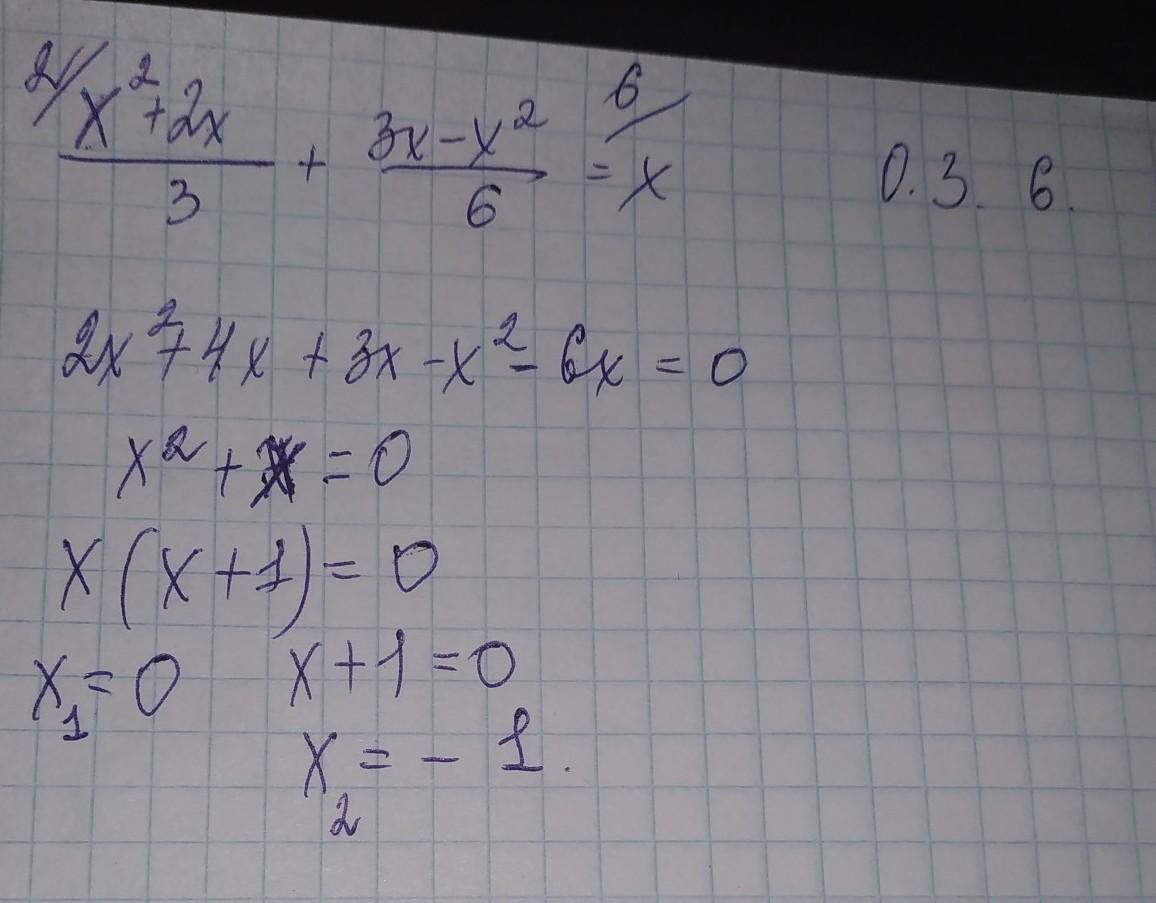 2/ (x²+2x)/3 + (3x-x²)/6 = 6/ x О.З. 6.
2x²+4x+3x-x²-6x=0
x²+x=0
x(x+1)=0
x₁=0 x+1=0
x₂=-1.